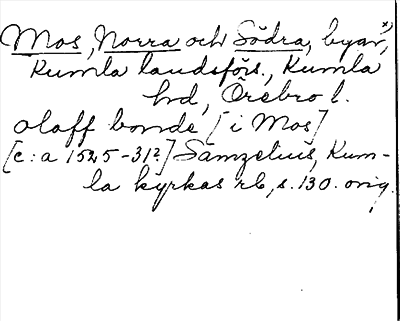 Mos, Norra och Södra, byar, x)
Kumla landsförs., Kumla
hd, Örebro l.
olaff bonde [i Mos]
[c:a 1525-31?] Samzelius, Kum-
la kyrkas rb, s. 130. orig.